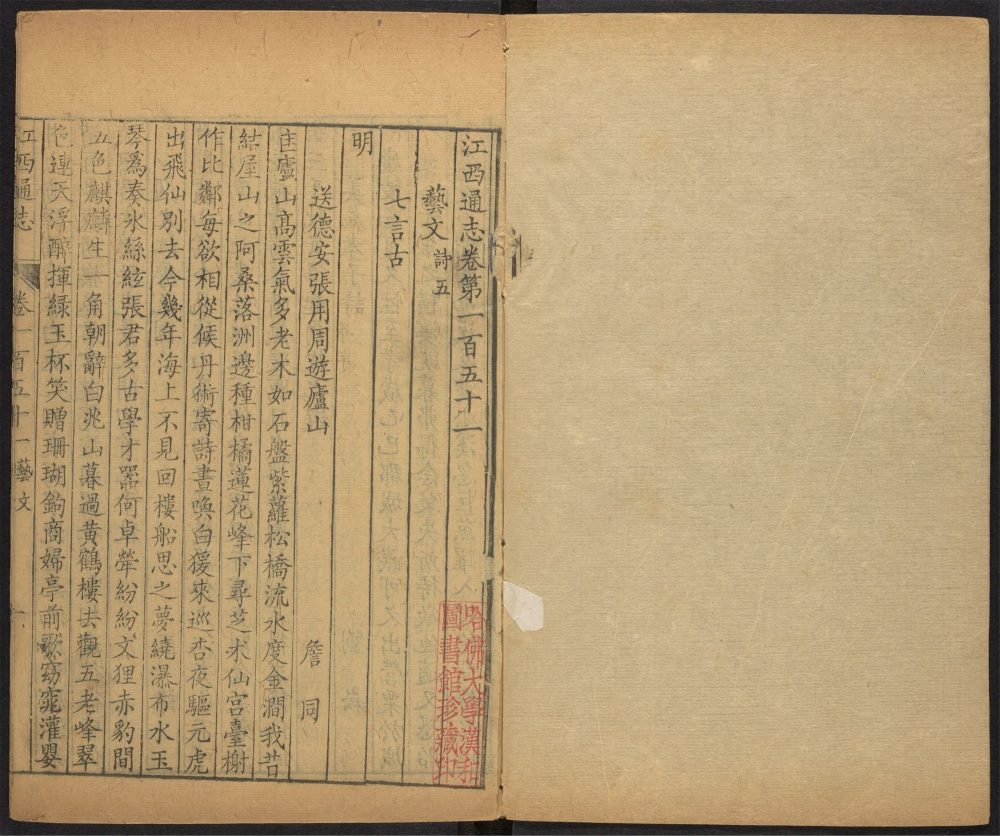 江西通志卷第一百五十一
藝文 詩五
七言古
明
送德安張用周遊廬山 詹同
匡廬山高雲氣多老木如石盤紫蘿松橋流水度金澗我昔
結屋山之阿桑落洲邊種柑橘蓮花峰下尋芝术仙宫臺榭
作比鄰每欲相從候丹術寄詩晝喚白猨來巡杏夜驅元虎
出飛仙别去今幾年海上不見回樓船思之夢繞瀑布水玉
琴爲奏氷絲絃張君多古學才器何卓犖紛紛文狸赤豹間
五色麒麟生一角朝辭白兆山暮過黄鶴樓去觀五老峰翠
色連天浮醉揮綠玉杯笑贈珊瑚鉤商婦亭前歌窈窕灌嬰
江西通志 卷一百五十一 藝文 一
哈佛大學漢和
圖書館珍藏印